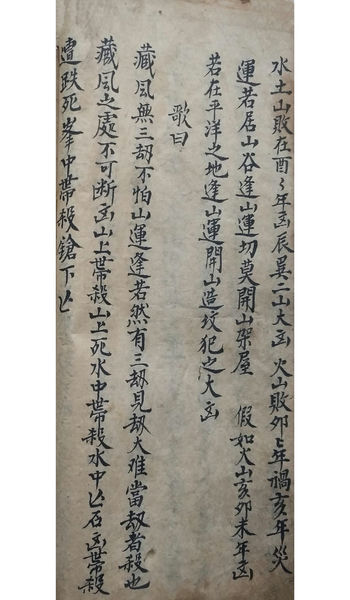 水土山敗在酉〻年凶辰巽二山大凶　火山敗卯〻年禍亥年災
運若居山谷逢山運切莫開山架屋　假如火山亥卯未年凶
若在平洋之地逢山運開山造坟犯之大凶
歌曰
藏風無三劫不怕山運逢若然有三劫見劫大难當劫者殺也
藏風之處不可断凶山上带殺山上死水中带殺水中亡石凶带殺
遭跌死峯中带殺鎗下亡